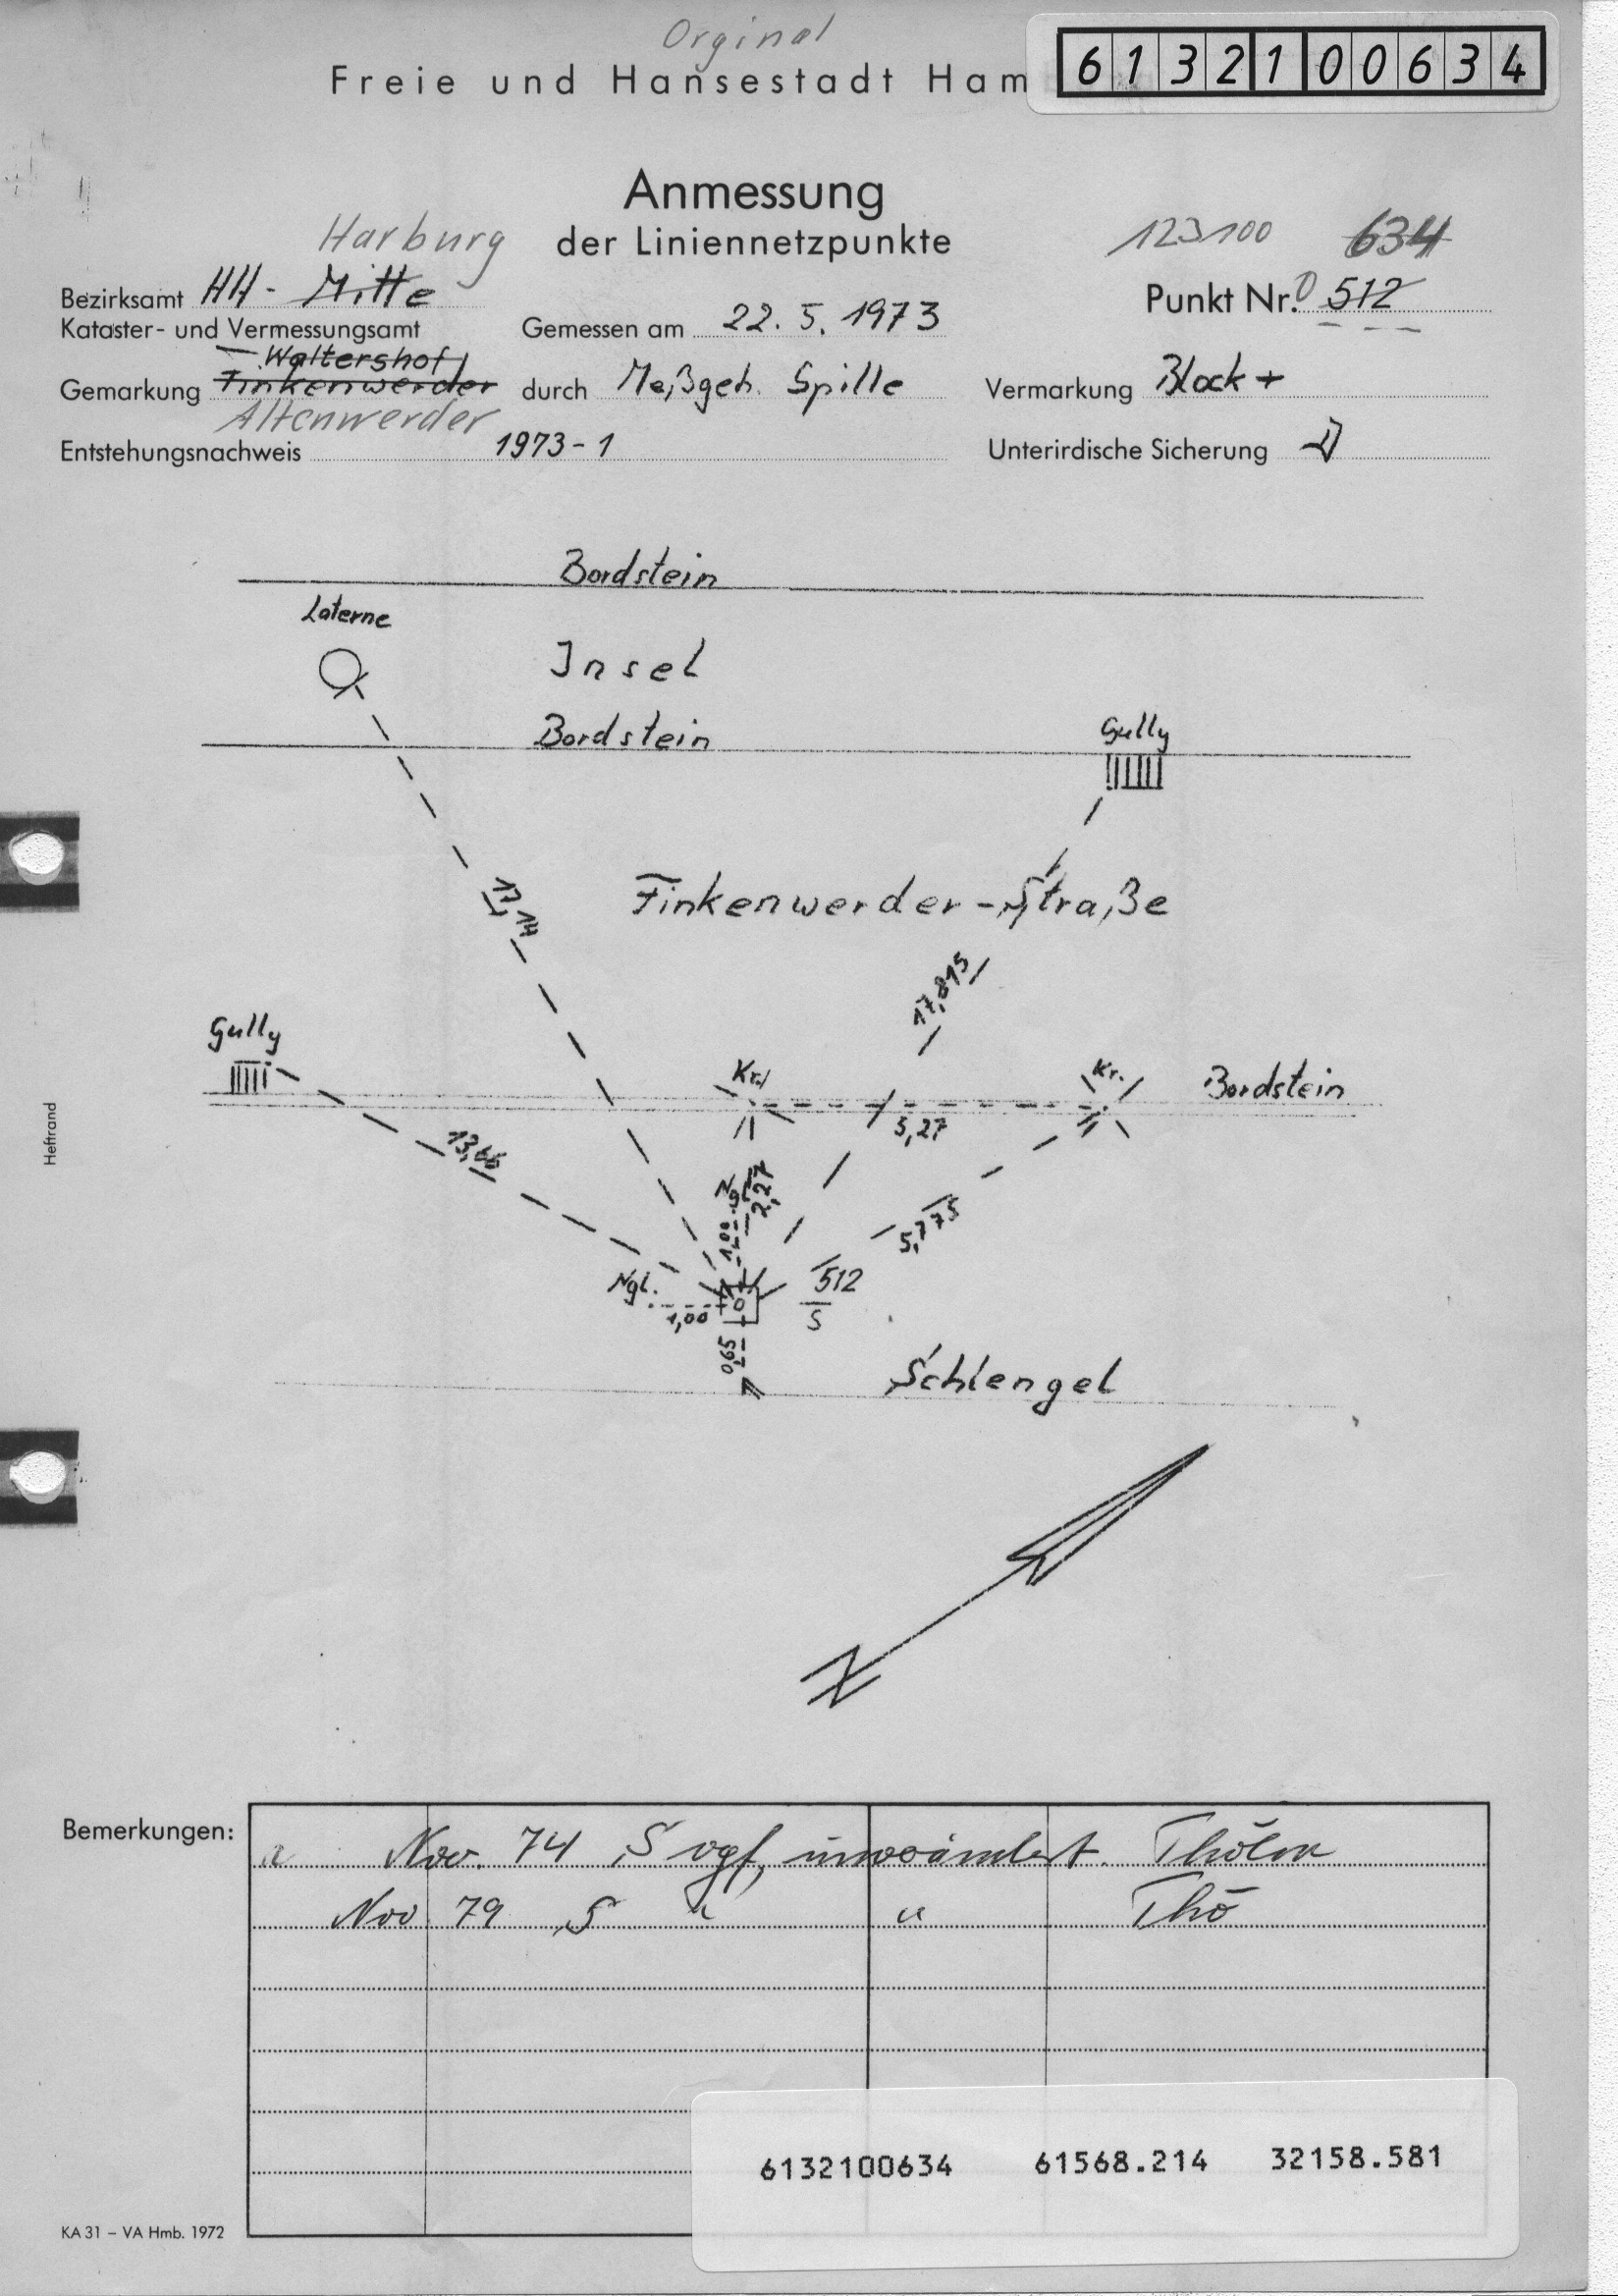 Orginal
Freie und Hansestadt Ham
6132100634
Anmessung
der Liniennetzpunkte
Harburg
123100 634
Bezirksamt HH- Mitte
Punkt Nr. 0 512
Kataster- und Vermessungsamt
Gemessen am 22. 5. 1973
Waltershof
Gemarkung Finkenwerder
durch Meßgeh. Spille
Vermarkung Block +
Altenwerder
Entstehungsnachweis 1973-1
Unterirdische Sicherung
Bordstein
Laterne
Insel
Bordstein
Gully
Finkenwerder-Straße
17,815
Gully
Kr.
Kr.
Bordstein
5,27
13,66
Ngl.
2,27
1,00
5,775
Ngl.
1,00
512
S
0,65
Schlengel
N
Heftrand
Bemerkungen:
Nov. 74 S vgf, unverändert. Thölen
Nov 79 S " " Thö
6132100634 61568.214 32158.581
KA 31 – VA Hmb. 1972